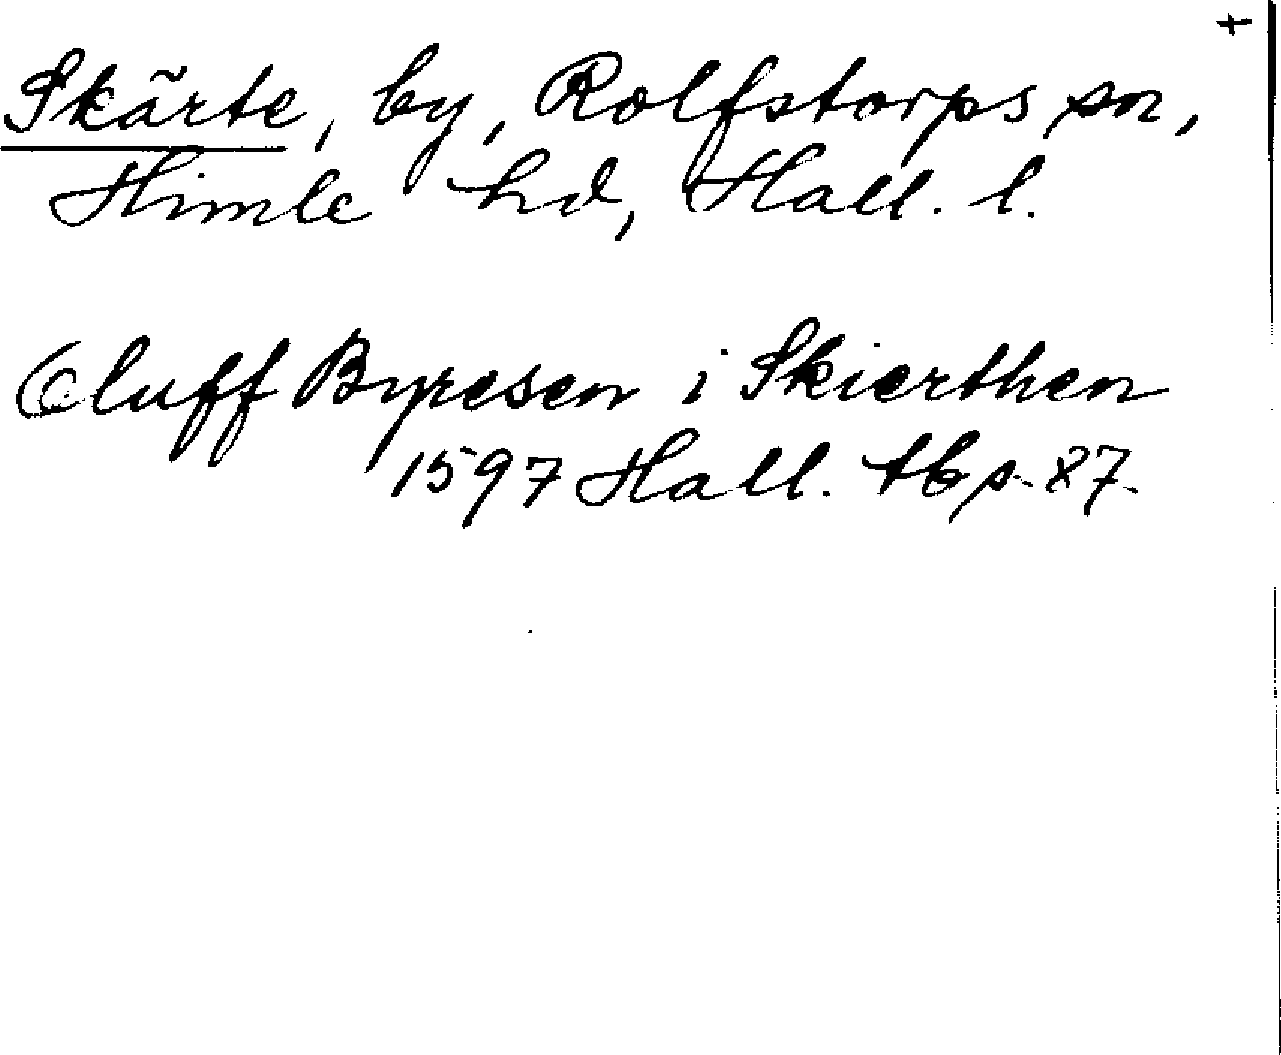 Skärte, by, Rolfstorps sn,
Himle hd, Hall. l.
Oluff Byresen i Skierthen
1597 Hall. tb s. 87.